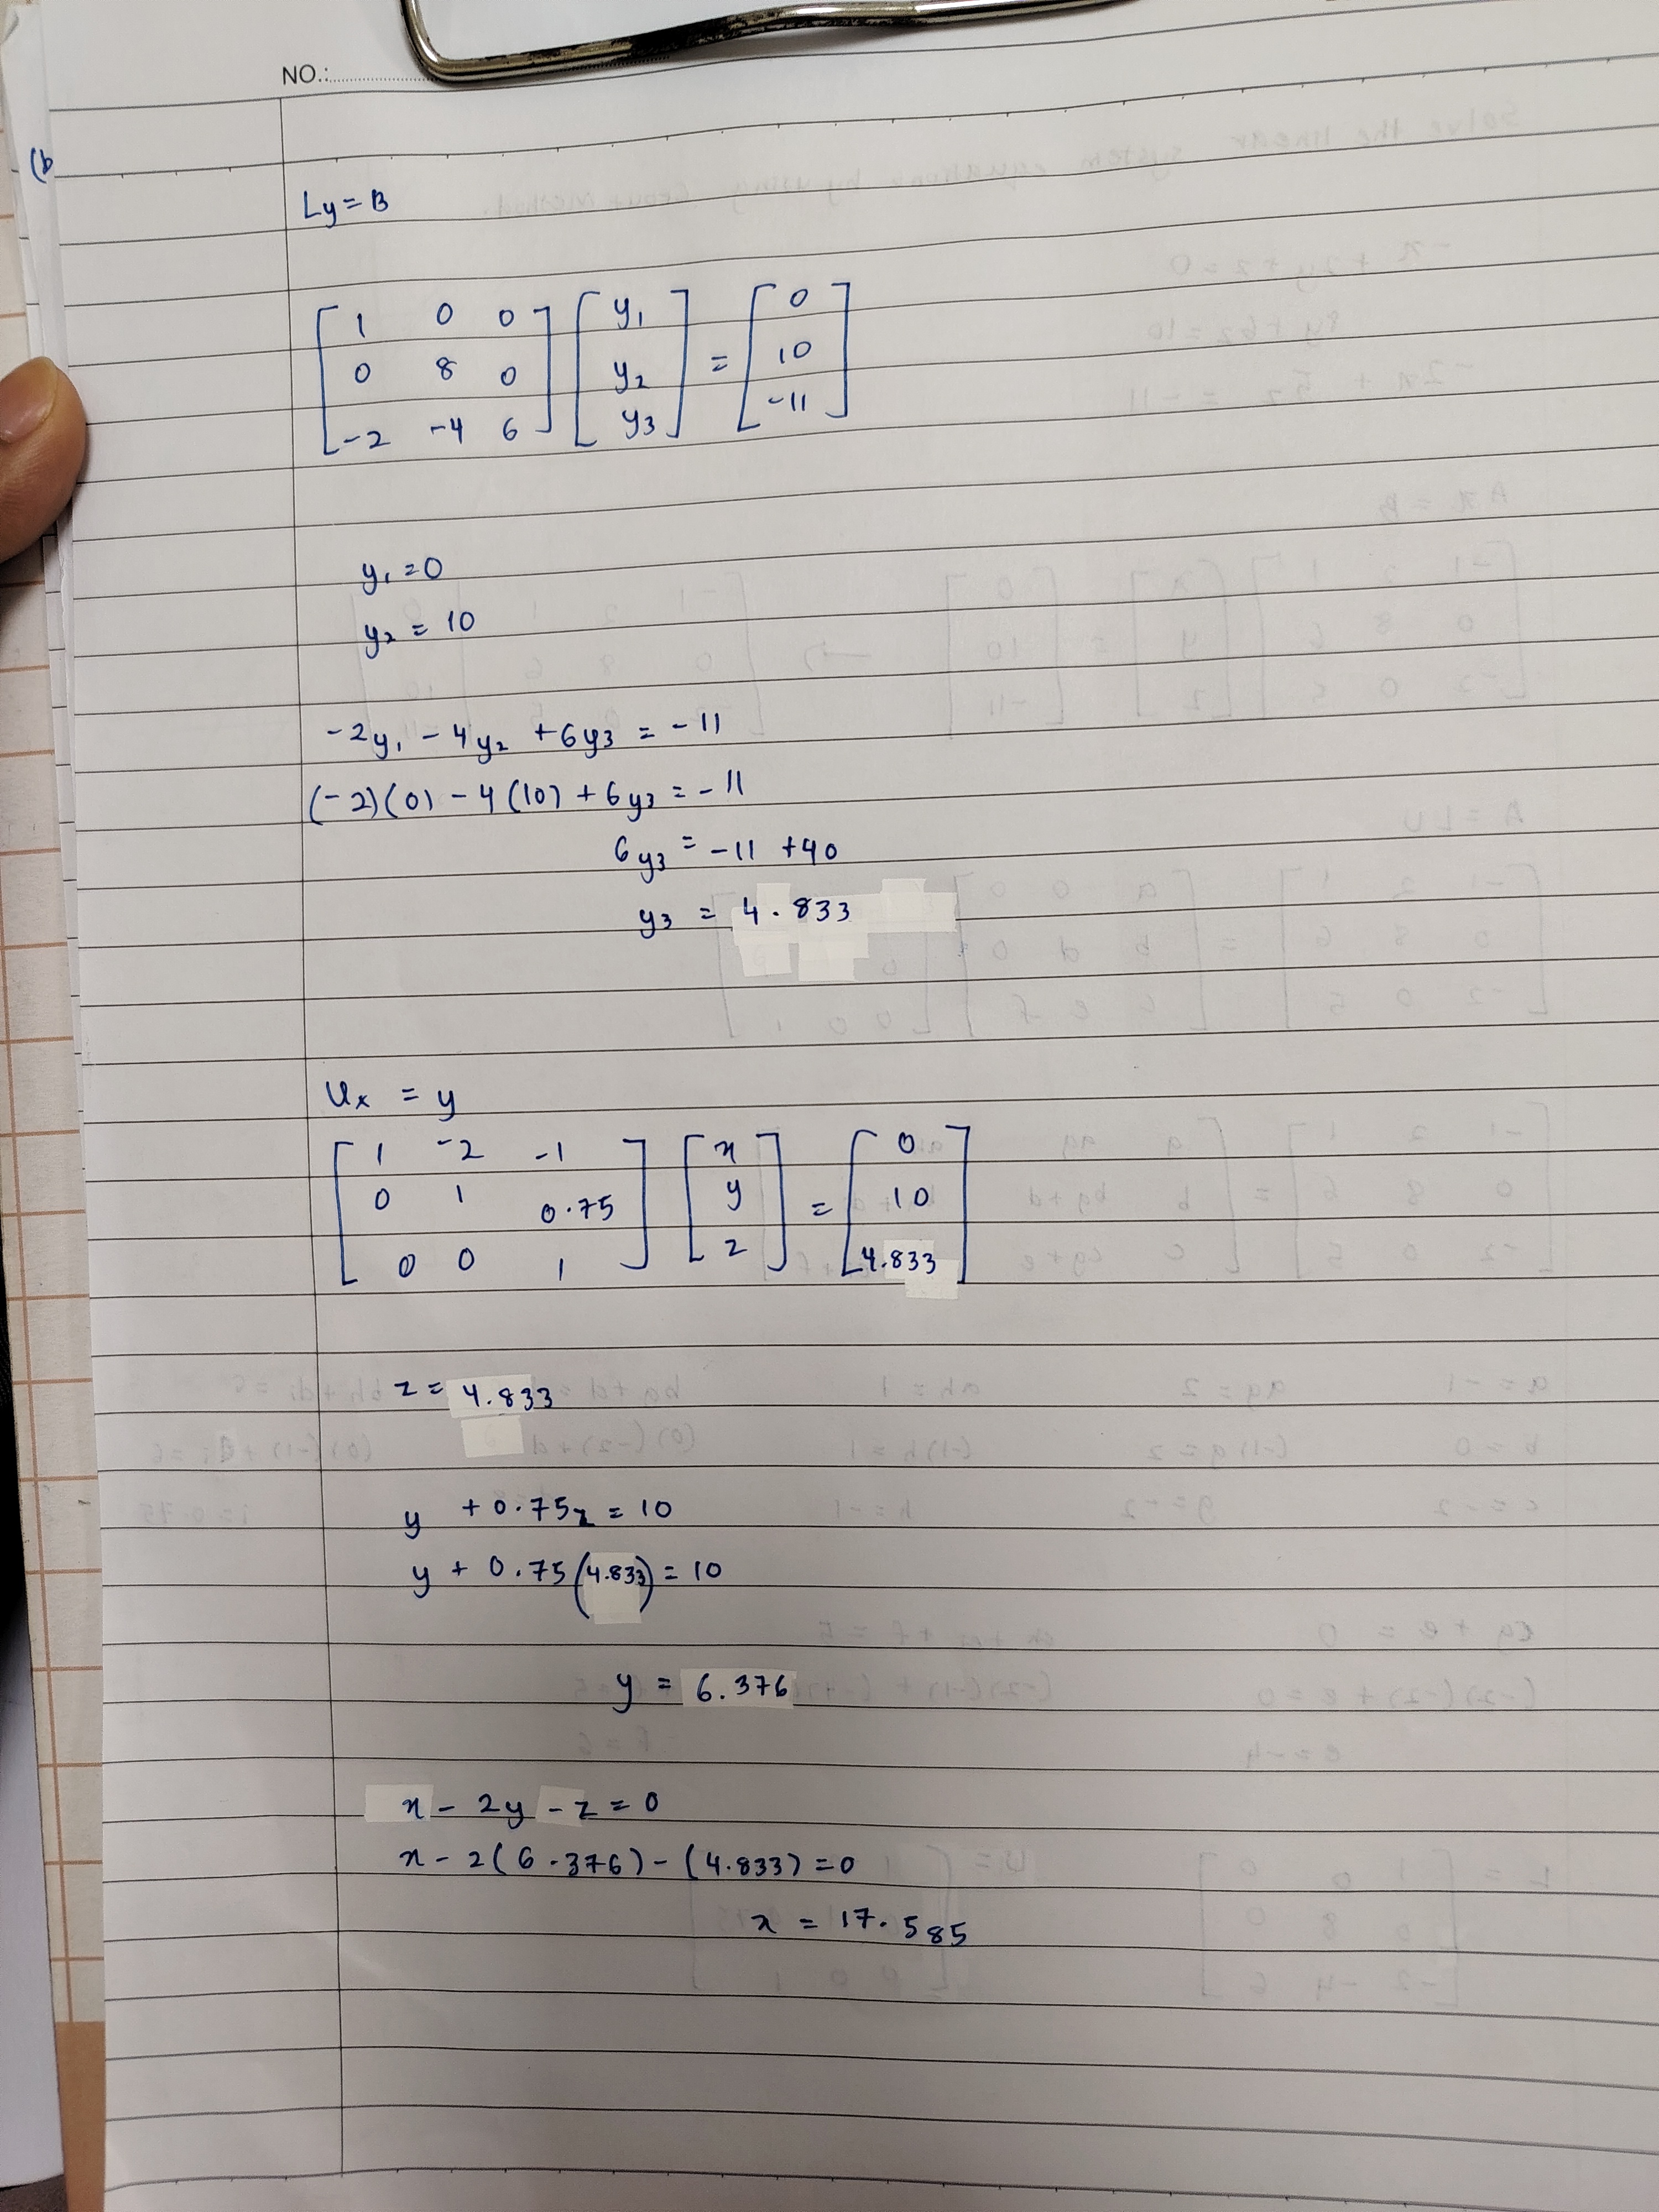 NO.:
(b
Ly = B
[ 1 0 0 ] [ y₁ ] = [ 0 ]
[ 0 8 0 ] [ y₂ ] = [ 10 ]
[ -2 -4 6 ] [ y₃ ] = [ -11 ]
y₁ = 0
y₂ = 10
-2y₁ - 4y₂ + 6y₃ = -11
(-2)(0) - 4(10) + 6y₃ = -11
6y₃ = -11 + 40
y₃ = 4.833
Ux = y
[ 1 -2 -1 ] [ x ] = [ 0 ]
[ 0 1 0.75 ] [ y ] = [ 10 ]
[ 0 0 1 ] [ z ] = [ 4.833 ]
z = 4.833
y + 0.75z = 10
y + 0.75(4.833) = 10
y = 6.376
x - 2y - z = 0
x - 2(6.376) - (4.833) = 0
x = 17.585